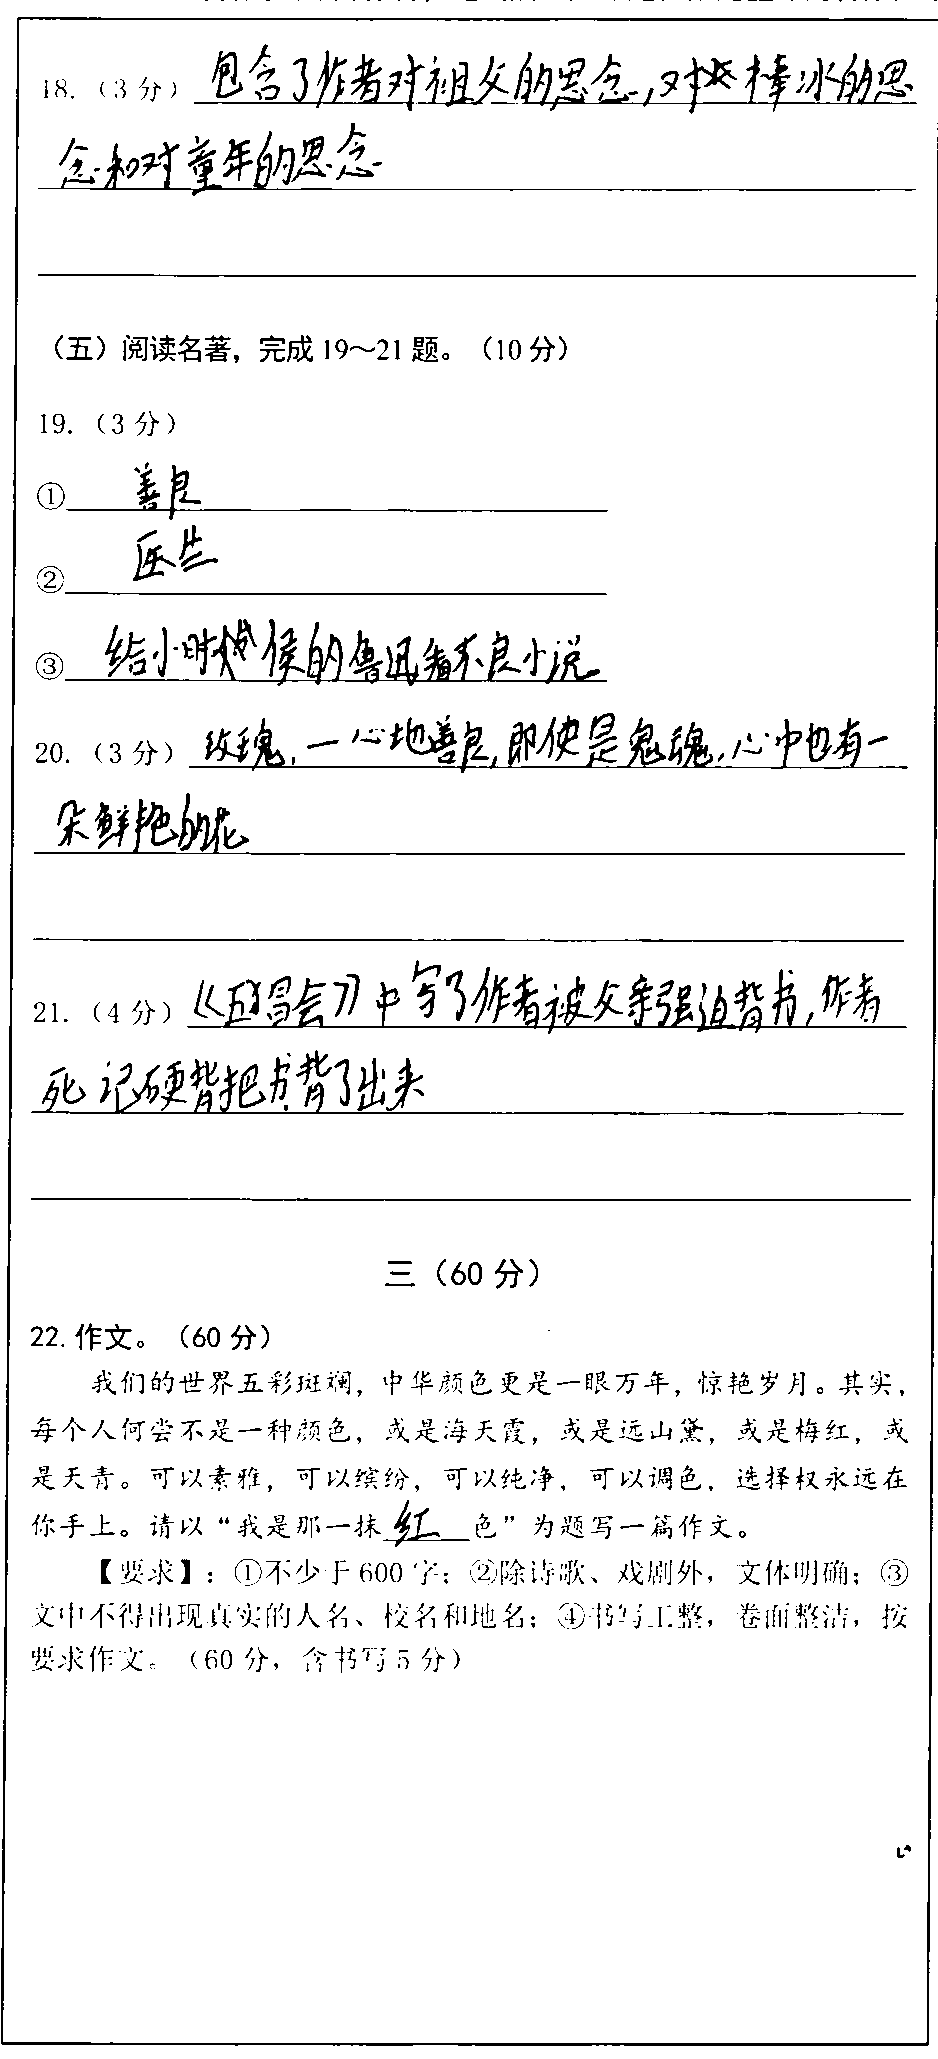 18.（3 分）包含了作者对祖父的思念，对棒冰的思
念和对童年的思念
（五）阅读名著，完成 19～21 题。（10 分）
19.（3 分）
① 善良
② 医生
③ 给小时候的鲁迅看不良小说
20.（3 分）玫瑰，一心地善良，即使是鬼魂，心中也有一
朵鲜艳的花
21.（4 分）《五猖会》中写了作者被父亲强迫背书，作者
死记硬背把书背了出来
三（60 分）
22. 作文。（60 分）
我们的世界五彩斑斓，中华颜色更是一眼万年，惊艳岁月。其实，
每个人何尝不是一种颜色，或是海天霞，或是远山黛，或是梅红，或
是天青。可以素雅，可以缤纷，可以纯净，可以调色，选择权永远在
你手上。请以“我是那一抹 红 色”为题写一篇作文。
【要求】：①不少于 600 字；②除诗歌、戏剧外，文体明确；③
文中不得出现真实的人名、校名和地名；④书写工整，卷面整洁，按
要求作文。（60 分，含书写 5 分）